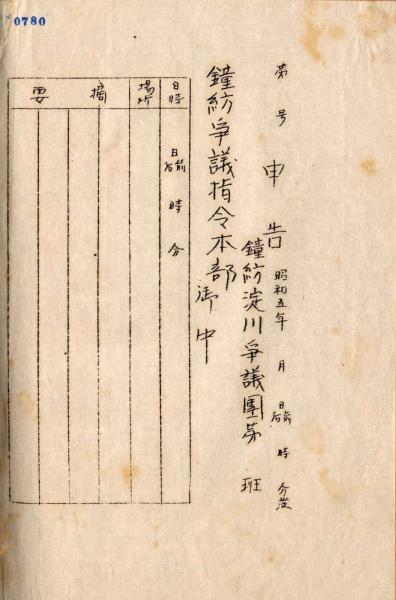 0780
第 号 申告 昭和五年 月 日 前后 時 分发
鐘紡淀川爭議團第 班
鐘紡爭議指令本部 御中
日時 日 前后 時 分
場所
摘要